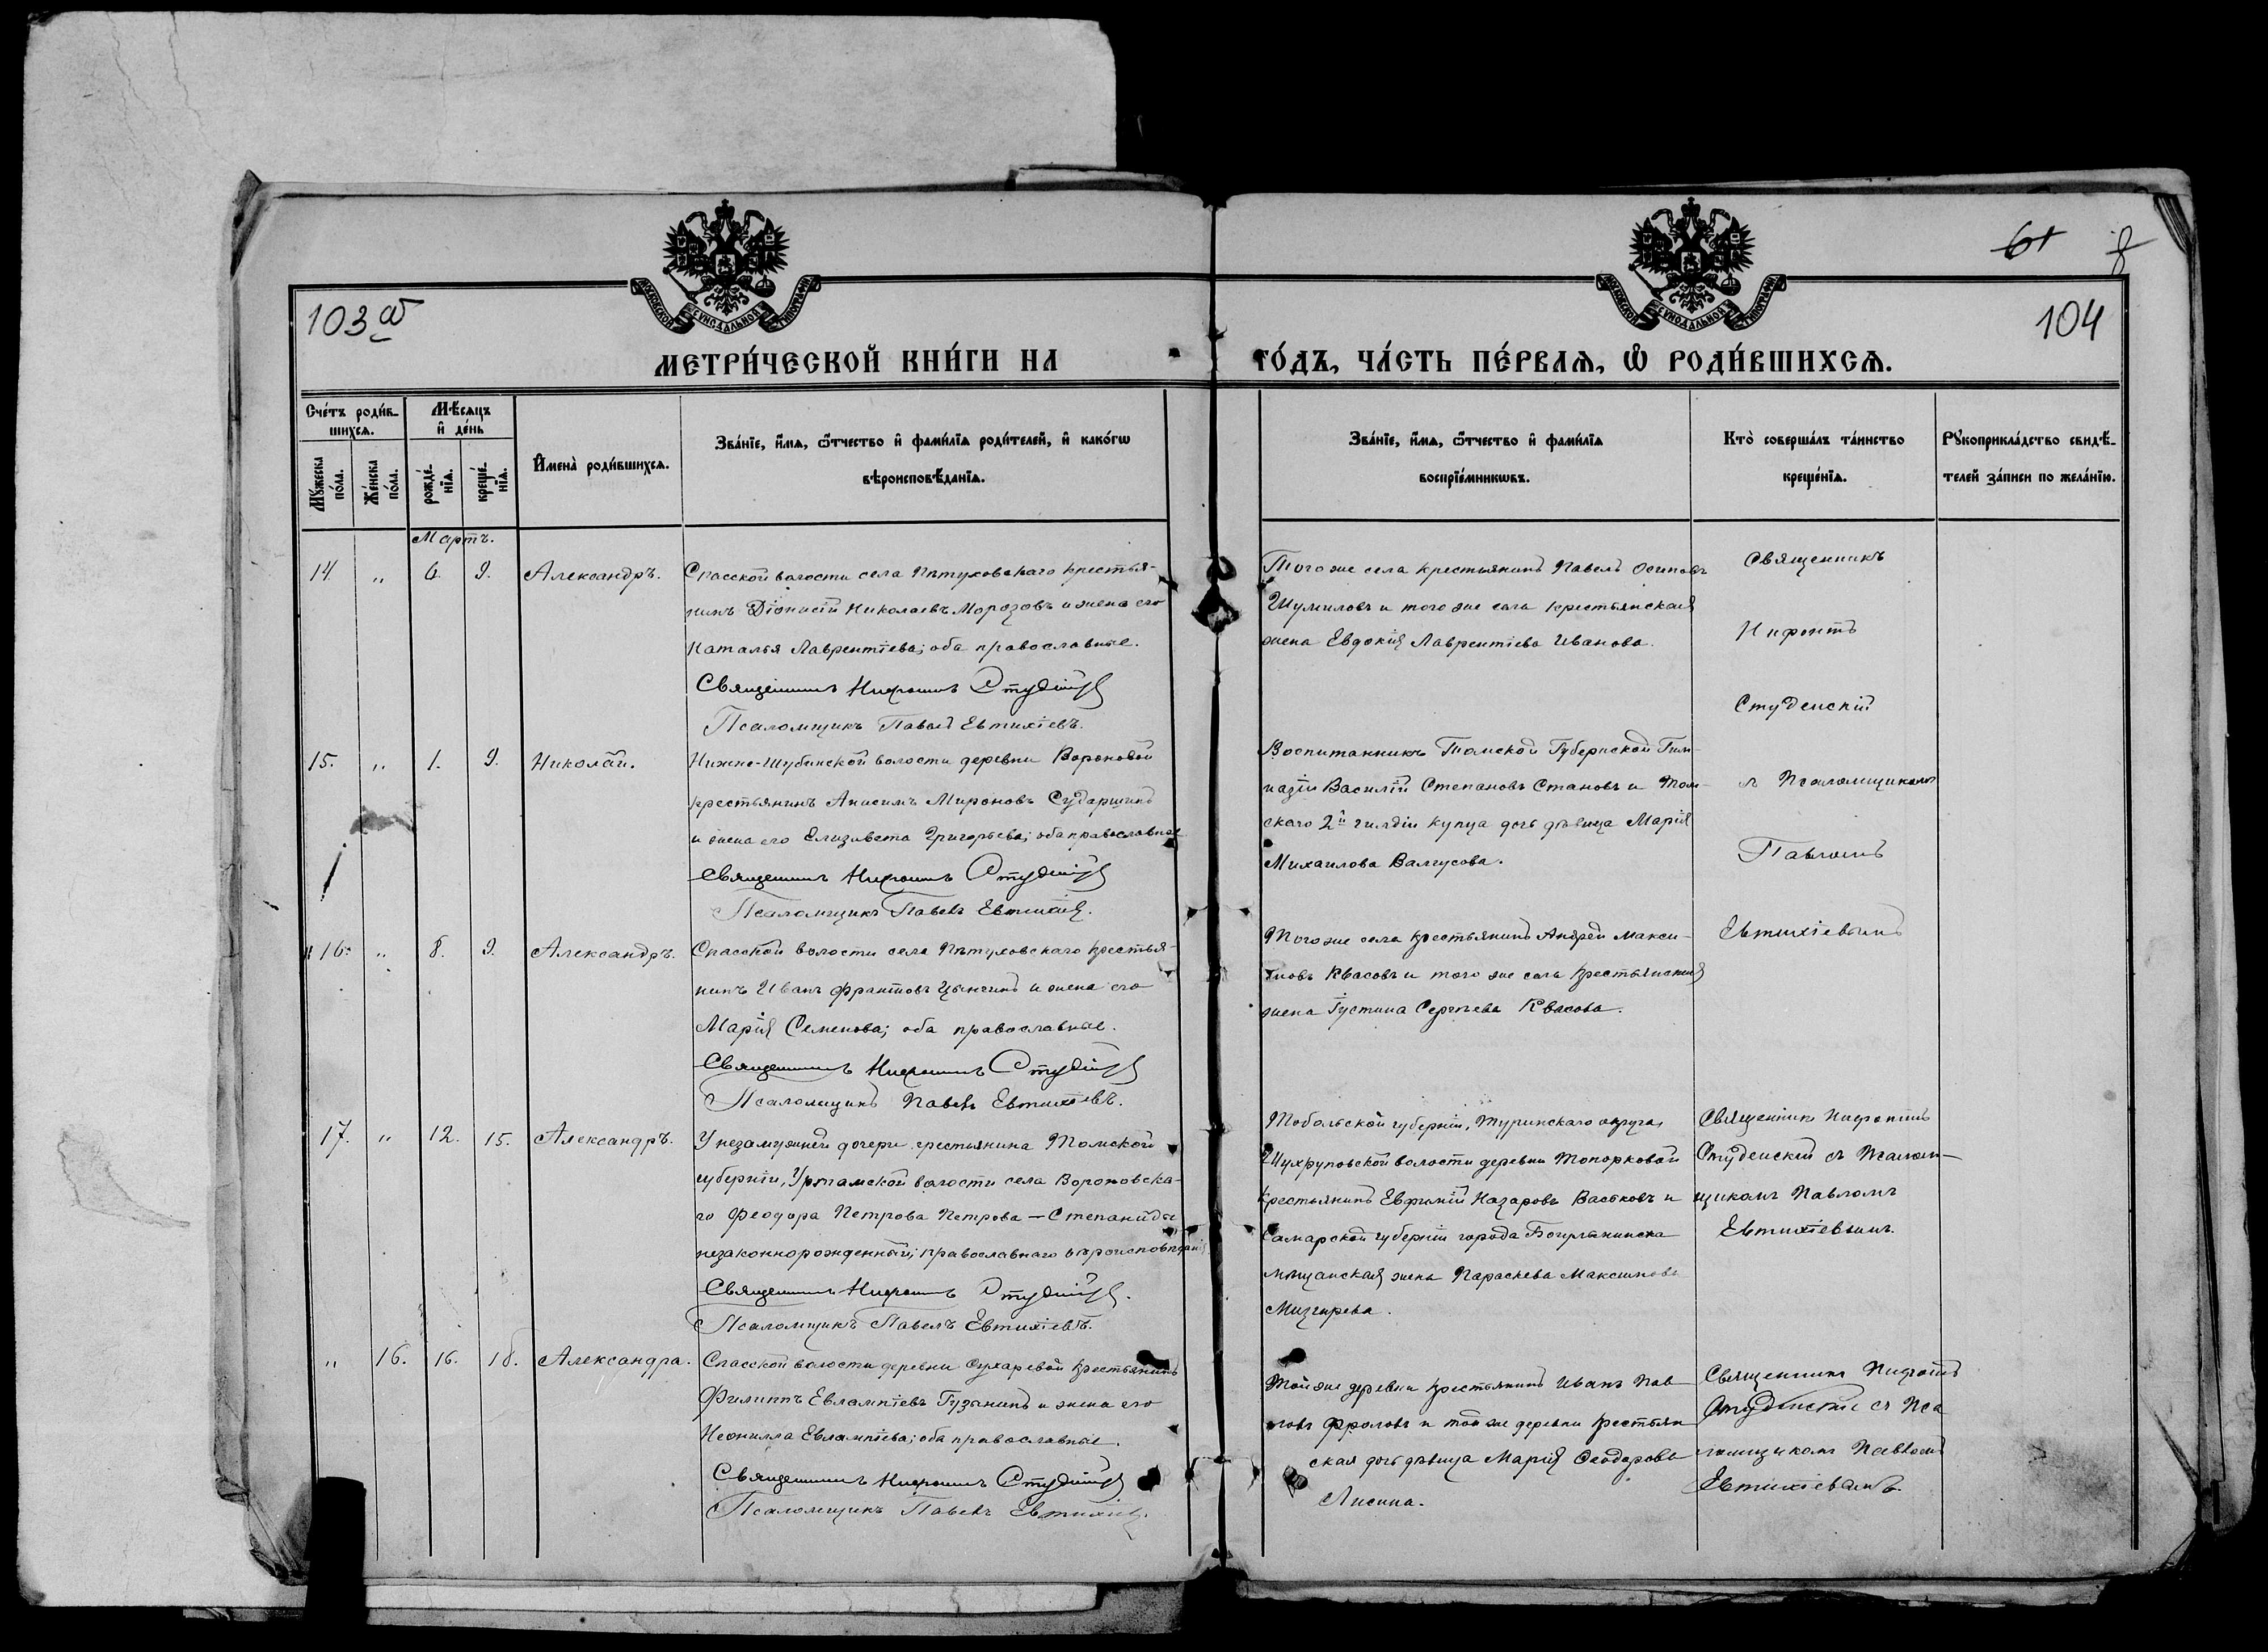 61 8
103 об
104
МОСКОВСКОЙ СѴНОДАЛЬНОЙ ТИПОГРАФІИ
МОСКОВСКОЙ СѴНОДАЛЬНОЙ ТИПОГРАФІИ
МЕТРИ́ЧЕСКОЙ КНИ́ГИ НА
ГО́ДЪ, ЧА́СТЬ ПЕ́РВАѦ, Ѡ РОДИ́ВШИХСѦ.
Сче́тъ роди́в-
шихсѧ.
Мꙋ́жеска по́ла.
Же́нска по́ла.
Мѣ́сѧцъ
и де́нь
рожде́-
нїѧ.
креще́-
нїѧ.
Имена̀ роди́вшихсѧ.
Зва́нїе, и́мѧ, ѻ́тчество и фами́лїѧ роди́телей, и како́гѡ
вѣроисповѣ́данїѧ.
Зва́нїе, и́мѧ, ѻ́тчество и фами́лїѧ
воспрїе́мникѡвъ.
Кто̀ соверша́лъ та́инство
креще́нїѧ.
Рꙋкоприкла́дство свидѣ́-
телей за́писи по жела́нїю.
Мартъ.
14 " 6. 9. Александръ.
Спасской волости села Пѣтуховскаго крестья-
нинъ Діонисій Николаевъ Морозовъ и жена его
Наталья Лаврентіева; оба православные.
Священникъ Нифонтъ Студенскій
Псаломщикъ Павелъ Евтихіевъ.
Того же села крестьянинъ Павелъ Осиповъ
Шумиловъ и того же села крестьянская
жена Евдокія Лаврентіева Иванова.
Священникъ
Нифонтъ
Студенскій
съ Псаломщикомъ
Павломъ
Евтихіевымъ
15. " 1. 9. Николай.
Нижне-Шубинской волости деревни Вороновой
крестьянинъ Анисимъ Мироновъ Сударщинъ
и жена его Елизавета Григорьева; оба православные
Священникъ Нифонтъ Студенскій
Псаломщикъ Павелъ Евтихіевъ.
Воспитанникъ Томской Губернской Гим-
назіи Василій Степановъ Становъ и Том-
скаго 2й гильдіи купца дочь дѣвица Марія
Михаилова Валгусова.
16. " 8. 9. Александръ.
Спасской волости села Пѣтуховскаго крестья-
нинъ Иванъ Франтовъ Цынгинъ и жена его
Марія Семенова; оба православные.
Священникъ Нифонтъ Студенскій
Псаломщикъ Павелъ Евтихіевъ.
Того же села крестьянинъ Андрей Макси-
мовъ Квасовъ и того же села крестьянская
жена Густина Сергѣева Квасова.
17. " 12. 15. Александръ.
У незамужней дочери крестьянина Томской
губерніи, Уртамской волости села Вороновска-
го Феодора Петрова Петрова — Степаниды
незаконнорожденный; православнаго вѣроисповѣданія
Священникъ Нифонтъ Студенскій.
Псаломщикъ Павелъ Евтихіевъ.
Тобольской губерніи, Туринскаго округа,
Шухруповской волости деревни Топорковой
крестьянинъ Евфимій Назаровъ Васьковъ и
Самарской губерніи города
мѣщанская жена Параскева Максимова
Мизгирева.
Священникъ Нифонтъ
Студенскій съ Псалом-
щикомъ Павломъ
Евтихіевымъ.
" 16. 16. 18. Александра.
Спасской волости деревни Сухаревой крестьянинъ
Филиппъ Евлампіевъ Гузынинъ и жена его
Неонилла Евлампіева; оба православные.
Священникъ Нифонтъ Студенскій
Псаломщикъ Павелъ Евтихіевъ.
Той же деревни крестьянинъ Иванъ Пав-
ловъ Фроловъ и той же деревни крестьян
ская дочь дѣвица Марія Феодорова
Лисина.
Священникъ Нифонтъ
Студенскій съ Пса
ломщикомъ Павломъ
Евтихіевымъ.